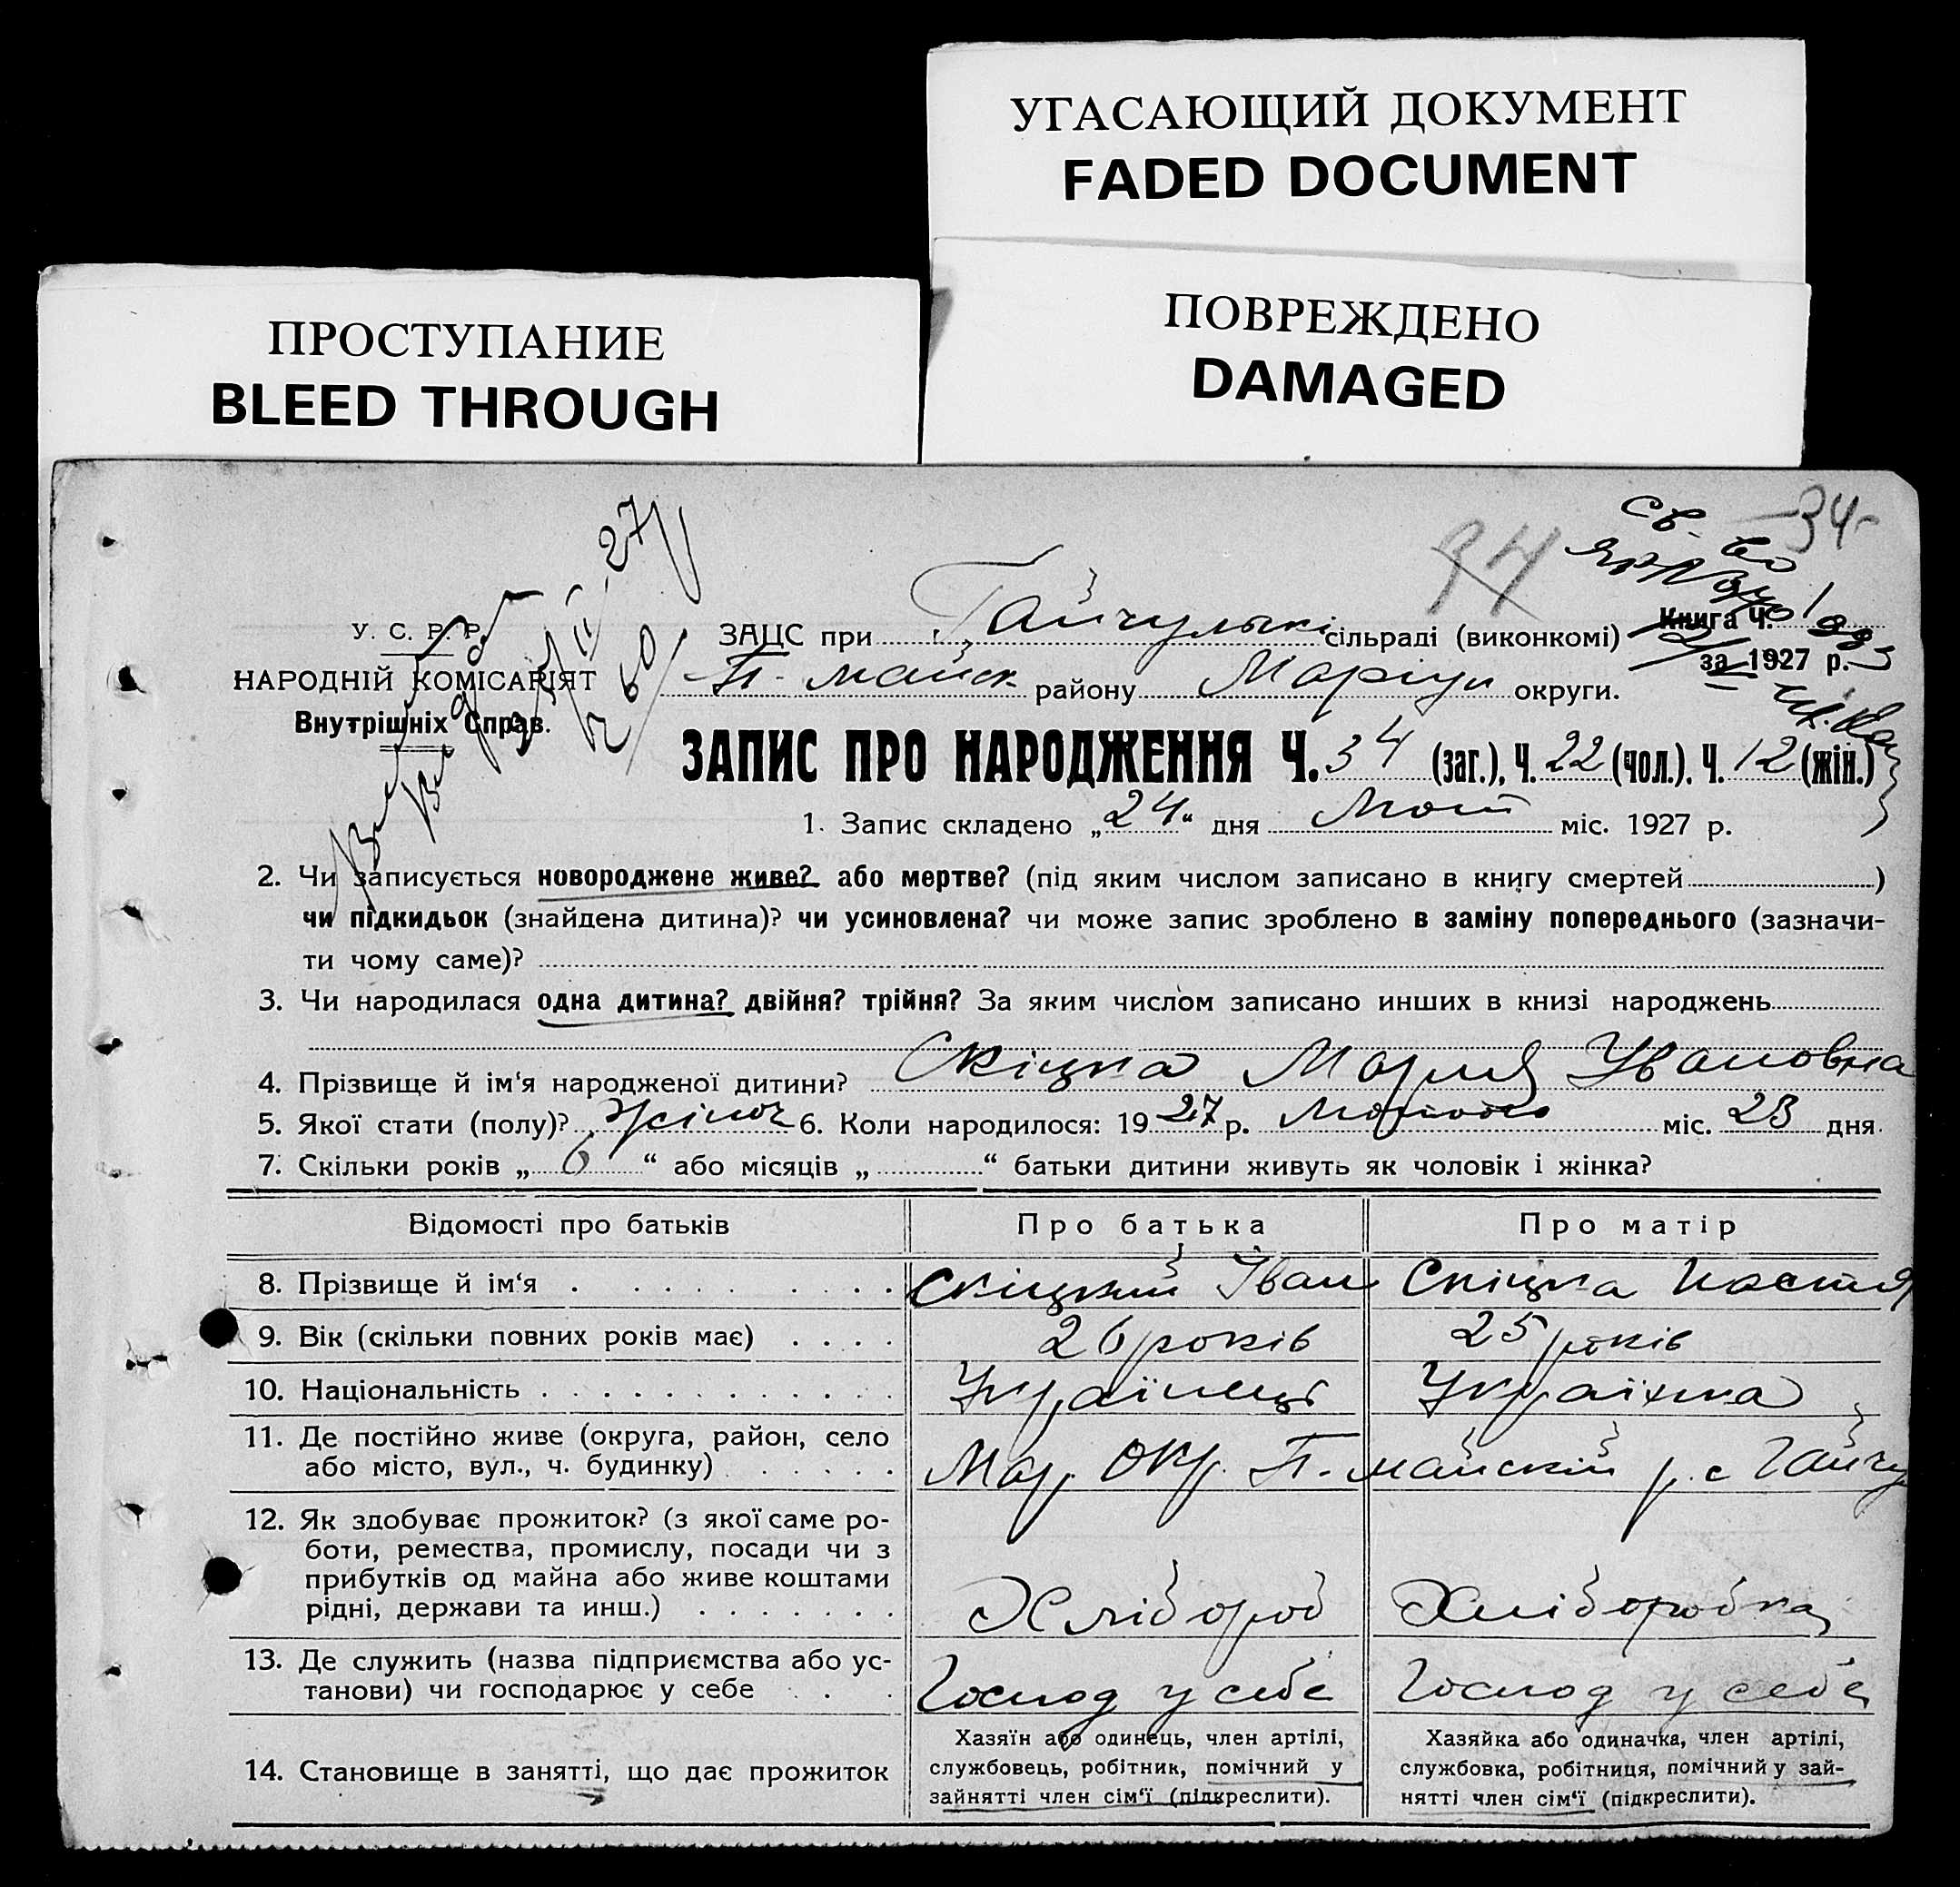 УГАСАЮЩИЙ ДОКУМЕНТ
FADED DOCUMENT
ПРОСТУПАНИЕ
BLEED THROUGH
ПОВРЕЖДЕНО
DAMAGED
34
34
У. С. Р. Р.
НАРОДНІЙ КОМІСАРІЯТ
Внутрішніх Справ.
ЗАЦС при Гайчульскі сільраді (виконкомі)
Книга Ч.
за 1927 р.
П-майск району Маріуп округи.
ЗАПИС ПРО НАРОДЖЕННЯ Ч. 34 (заг.), Ч. 22 (чол.). Ч. 12 (жін.)
1. Запис складено „24“ дня Лют міс. 1927 р.
2. Чи записується новороджене живе? або мертве? (під яким числом записано в книгу смертей )
чи підкидьок (знайдена дитина)? чи усиновлена? чи може запис зроблено в заміну попереднього (зазначи-
ти чому саме)?
3. Чи народилася одна дитина? двійня? трійня? За яким числом записано инших в книзі народжень
4. Прізвище й ім‘я народженої дитини? Скіцка Мария Ивановна
5. Якої стати (полу)? жіноч 6. Коли народилося: 1927 р. Лютого міс. 23 дня.
7. Скільки років „ 6 “ або місяців „ “ батьки дитини живуть як чоловік і жінка?
Відомості про батьків Про батька Про матір
8. Прізвище й ім‘я Скіцкий Іван Скіцка Настя
9. Вік (скільки повних років має) 26 років 25 років
10. Національність Українець Українка
11. Де постійно живе (округа, район, село
або місто, вул., ч. будинку) Мар. окр. П-майский р. с Гайчу
12. Як здобуває прожиток? (з якої саме ро-
боти, ремества, промислу, посади чи з
прибутків од майна або живе коштами
рідні, держави та инш.) Хлібороб Хліборобка
13. Де служить (назва підприємства або ус-
танови) чи господарює у себе Господ у себе Господ у себе
14. Становище в занятті, що дає прожиток
Хазяїн або одинець, член артілі,
службовець, робітник, помічний у
зайнятті член сім‘ї (підкреслити).
Хазяйка або одиначка, член артілі,
службовка, робітниця, помічний у зай-
нятті член сім‘ї (підкреслити).